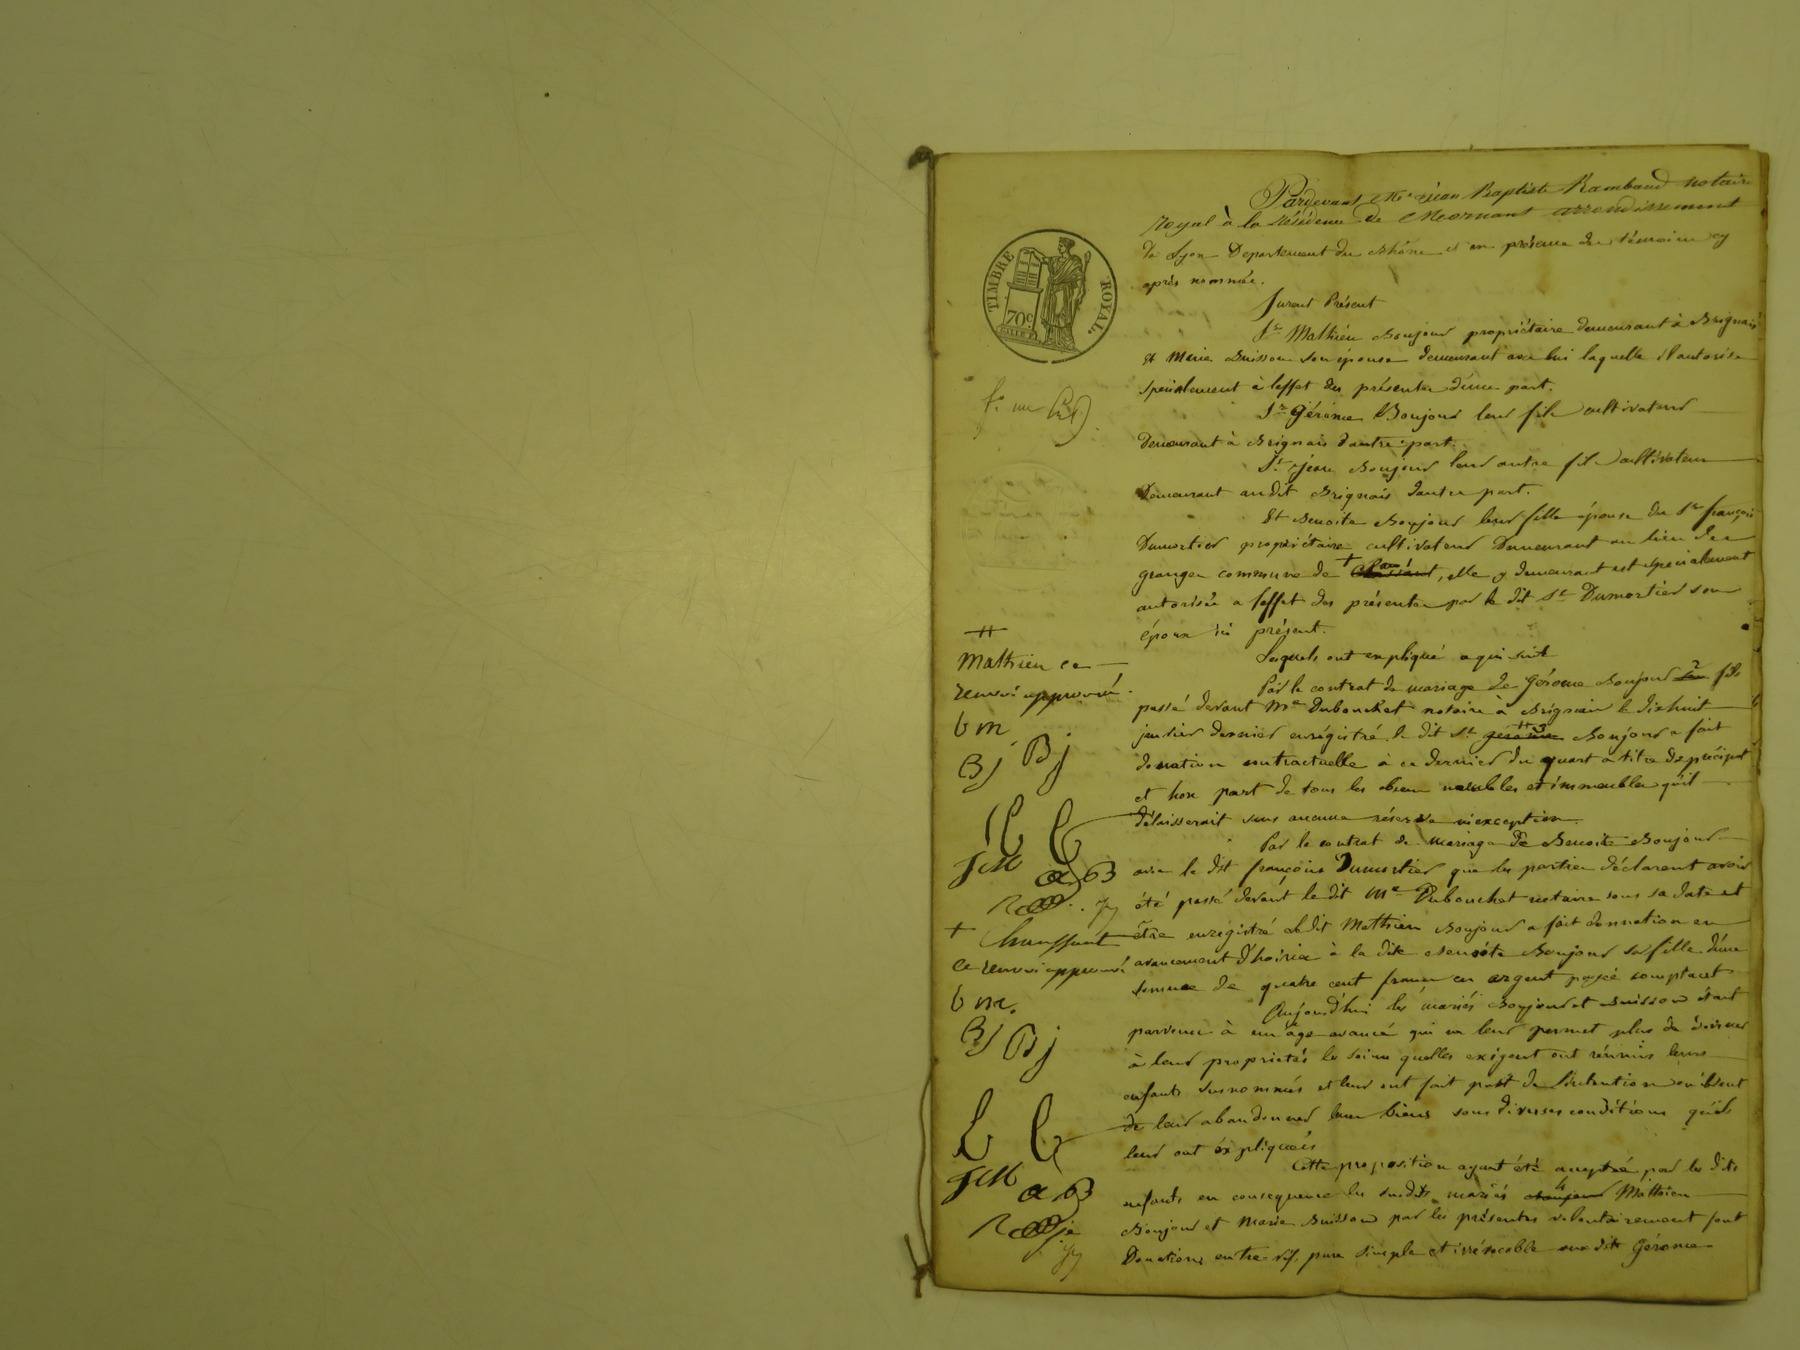 Pardevant Me Jean Baptiste Rambaud notaire
royal à la résidence de Mornant arrondissement
de Lyon Departement du Rhône et en présence des témoins cy
après nommés.
TIMBRE ROYAL
70c
furent Présent
Sr Mathieu Boujour propriétaire demeurant à Brignais
et Marie Buisson son épouse demeurant avec lui laquelle il autorise
spécialement à l'effet des présentes d'une part.
Sr Gérome Boujour leur fils cultivateur
demeurant à Brignais d'autre part.
Sr Jean Boujour leur autre fils cultivateur
Demeurant audit Brignais d'autre part.
Et Benoite Boujour leur fille épouse du Sr françois
Dumortier propriétaire cultivateur Demeurant au lieu des
granges commune de +, elle y demeurant et spécialement
autorisée a l'effet des présentes par le dit Sr Dumortier son
époux ici présent.
Lesquels ont expliqué ce qui suit
Par le contrat de mariage de Gérome Boujour fils
passé devant Me Dubouchet notaire à Brignais le dixhuit
janvier dernier enrégistré le dit Sr gérôme Boujour a fait
donation contractuelle à ce dernier du quart à titre de préciput
et hors part de tous les biens meubles et immeubles qu'il
délaisserait sans aucune réserve ni exception.
Par le contrat de mariage de Benoite Boujour
avec le dit françois Dumortier que les parties déclarent avoir
été passé devant le dit Me Dubouchet notaire sous sa date et
être enrégistré le dit Mathieu Boujour a fait donnation en
avancement d'hoirie à la dite Benoite Boujour sa fille d'une
somme de quatre cent francs en argent payée comptant
Aujourd'hui les mariés Boujour et Buisson étant
parvenus à un âge avancé qui ne leur permet plus de donner
à leurs propriétés les soins quelles exigent ont réunis leurs
enfants susnommés et leur ont fait part de l'intention où ils sont
de leur abandonner leurs biens sous diverses conditions qu'ils
leur ont expliquées
Cette proposition ayant été acceptée par les dits
enfants en conséquence les susdits mariés Boujour Mathieu
Boujour et Marie Buisson par les présentes volontairement font
Donation entre vifs pure simple et irrévocable aux dits Gérome
Mathieu ce
renvoi approuvé.
b m
Bj Bj
JCM
+ Chaussant
ce renvoi approuvé
b m.
Bj Bj
JCM